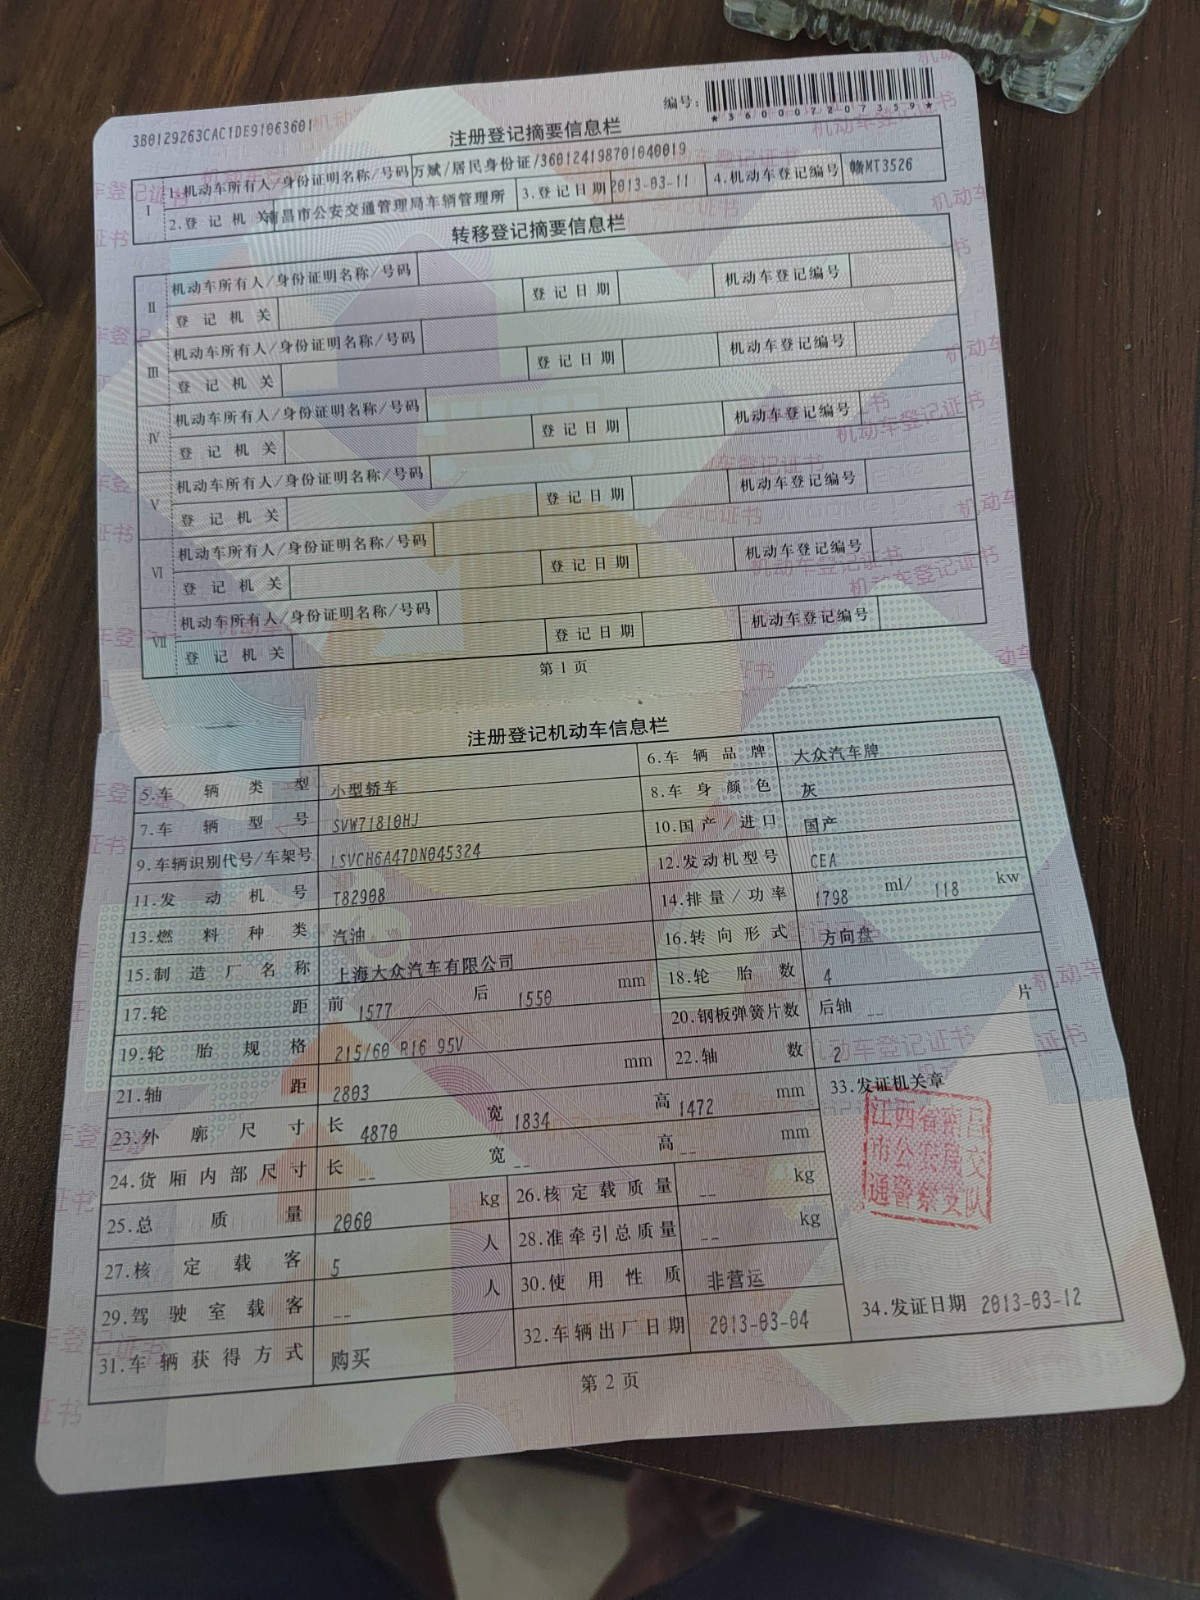 3B0129263CAC1DE91063601
编号：
*360007207359*
注册登记摘要信息栏
I 1.机动车所有人/身份证明名称/号码 万斌/居民身份证/360124198701040019
2.登记机关 南昌市公安交通管理局车辆管理所 3.登记日期 2013-03-11 4.机动车登记编号 赣MT3526
转移登记摘要信息栏
II 机动车所有人/身份证明名称/号码
登记机关 登记日期 机动车登记编号
III 机动车所有人/身份证明名称/号码
登记机关 登记日期 机动车登记编号
IV 机动车所有人/身份证明名称/号码
登记机关 登记日期 机动车登记编号
V 机动车所有人/身份证明名称/号码
登记机关 登记日期 机动车登记编号
VI 机动车所有人/身份证明名称/号码
登记机关 登记日期 机动车登记编号
VII 机动车所有人/身份证明名称/号码
登记机关 登记日期 机动车登记编号
第1页
注册登记机动车信息栏
5.车辆类型 小型轿车 6.车辆品牌 大众汽车牌
7.车辆型号 SVW71810HJ 8.车身颜色 灰
9.车辆识别代号/车架号 LSVCH6A47DN045324 10.国产/进口 国产
11.发动机号 T82908 12.发动机型号 CEA
13.燃料种类 汽油 14.排量/功率 1798 ml/ 118 kw
15.制造厂名称 上海大众汽车有限公司 16.转向形式 方向盘
17.轮距 前 1577 后 1550 mm 18.轮胎数 4
19.轮胎规格 215/60 R16 95V 20.钢板弹簧片数 后轴 -- 片
21.轴距 2803 mm 22.轴数 2
23.外廓尺寸 长 4870 宽 1834 高 1472 mm 33.发证机关章
24.货厢内部尺寸 长 -- 宽 -- 高 -- mm
江西省南昌
市公安局交
通警察支队
25.总质量 2060 kg 26.核定载质量 -- kg
27.核定载客 5 人 28.准牵引总质量 -- kg
29.驾驶室载客 -- 人 30.使用性质 非营运
31.车辆获得方式 购买 32.车辆出厂日期 2013-03-04 34.发证日期 2013-03-12
第2页